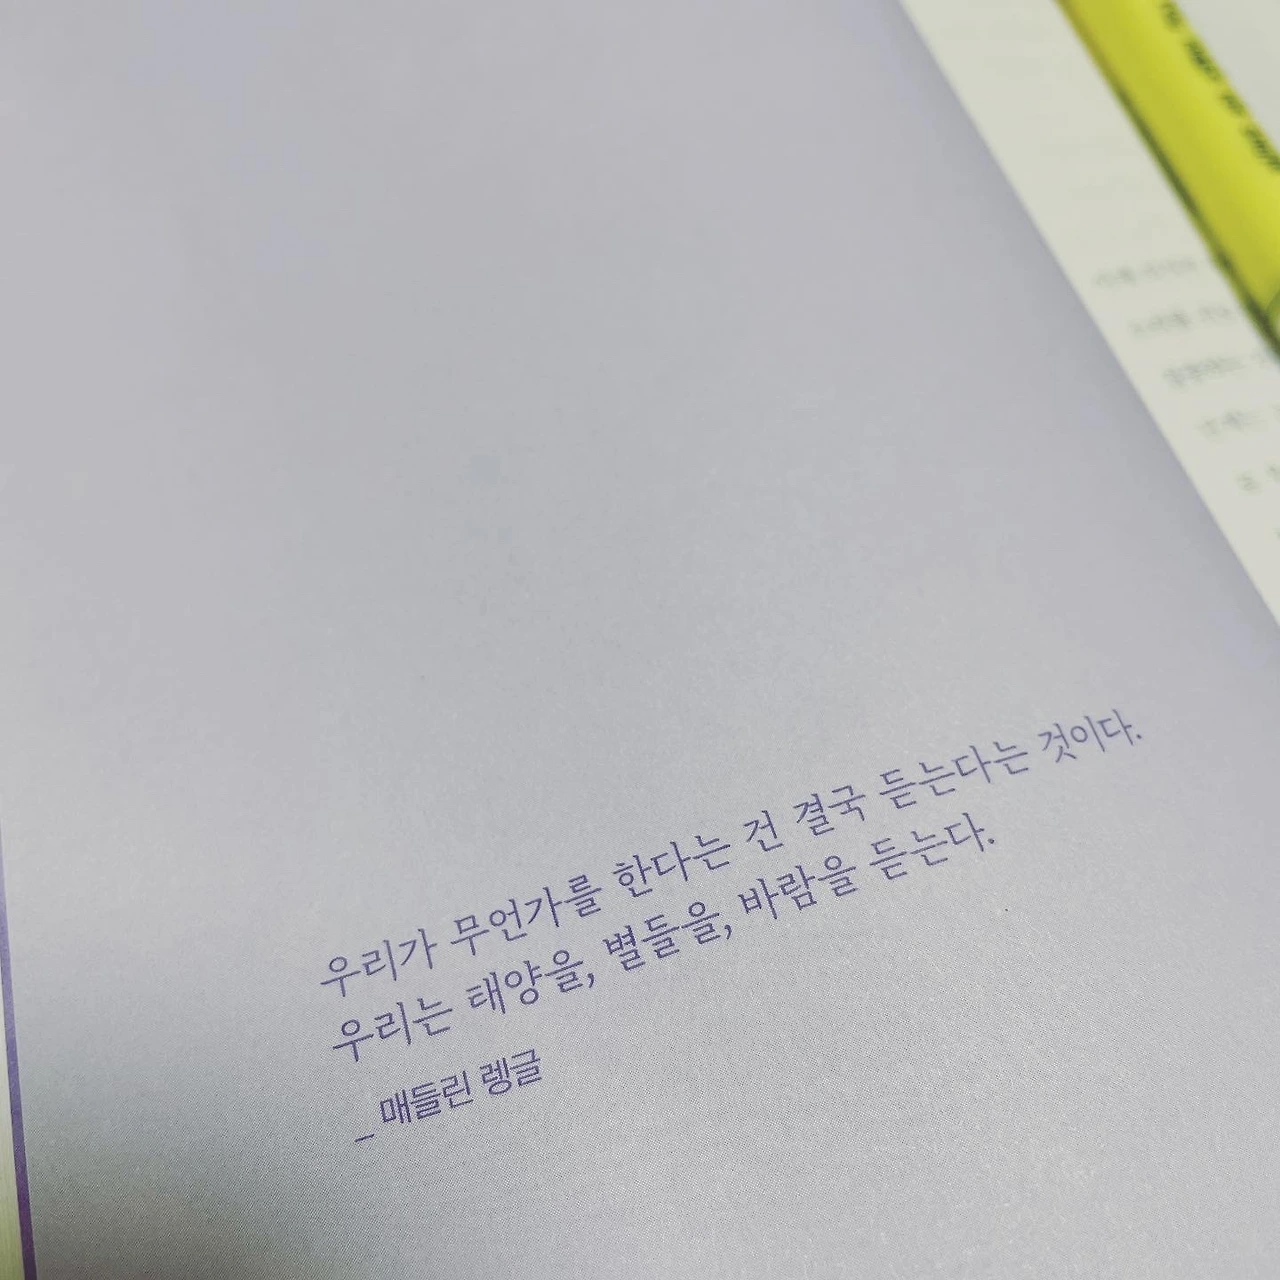 우리가 무언가를 한다는 건 결국 듣는다는 것이다.
우리는 태양을, 별들을, 바람을 듣는다.
_ 매들린 렝글